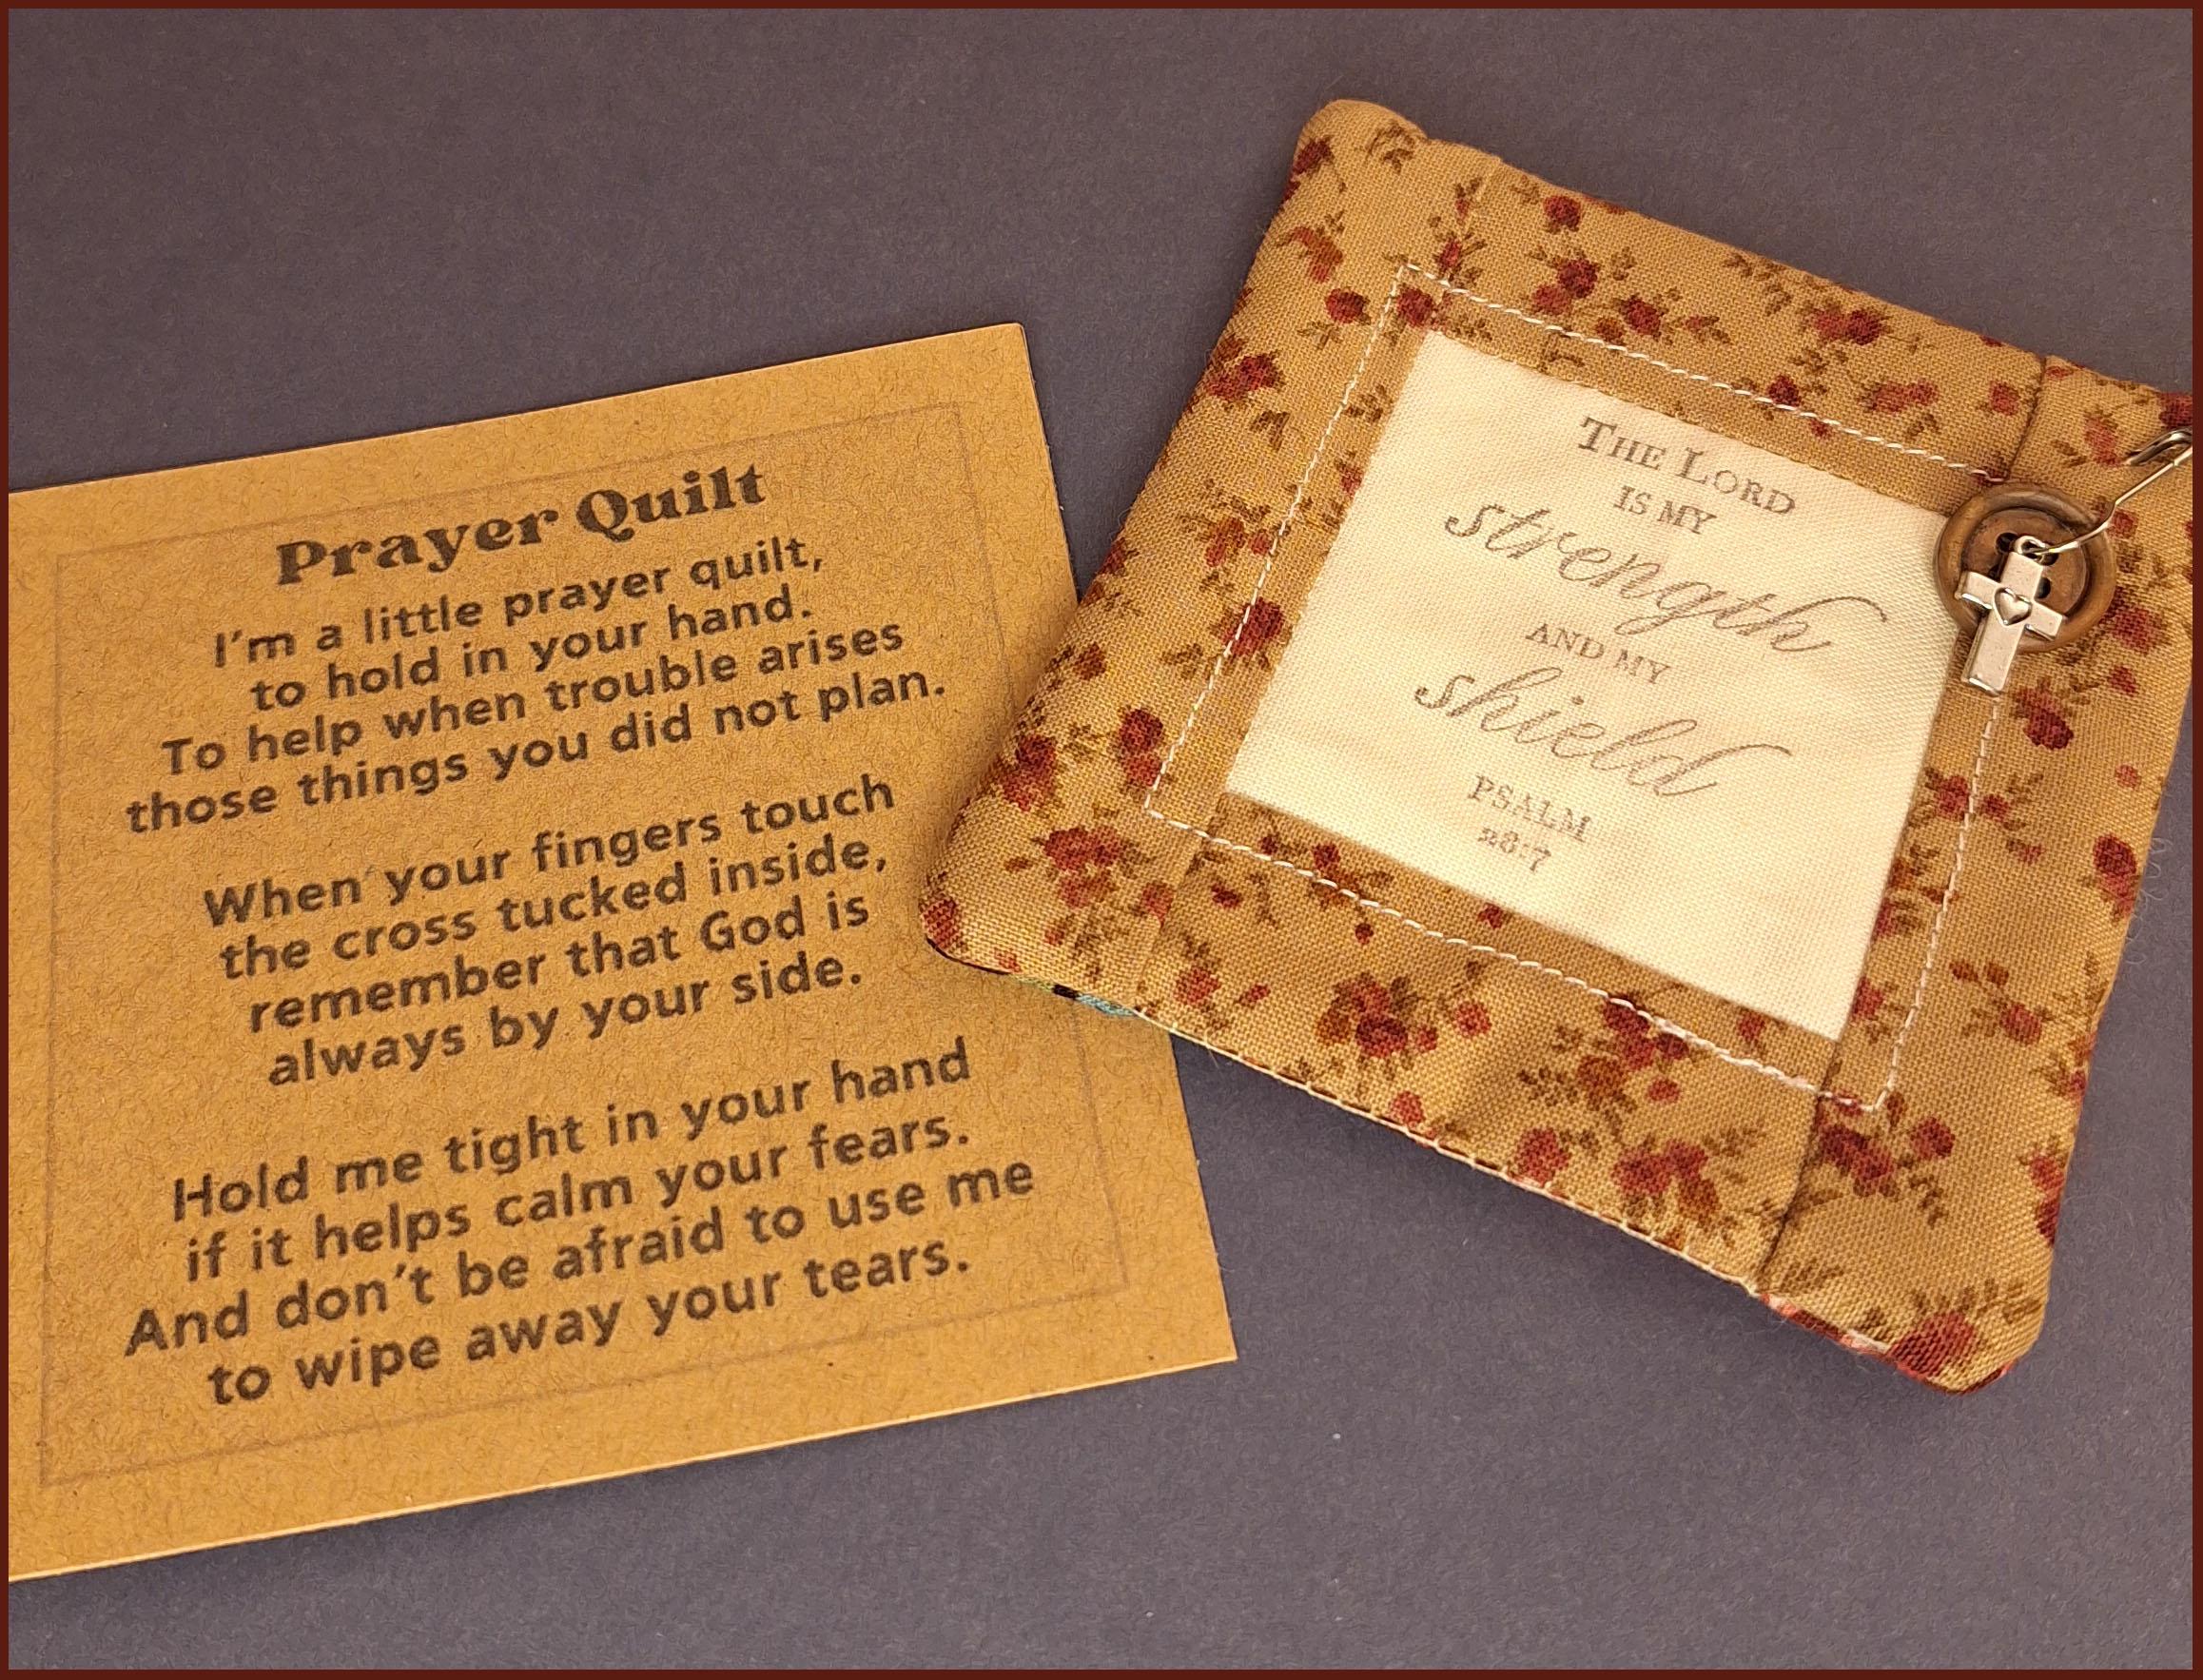 Prayer Quilt
I'm a little prayer quilt,
to hold in your hand.
To help when trouble arises
those things you did not plan.
When your fingers touch
the cross tucked inside,
remember that God is
always by your side.
Hold me tight in your hand
if it helps calm your fears.
And don't be afraid to use me
to wipe away your tears.
THE LORD
IS MY
strength
AND MY
shield
PSALM
28:7